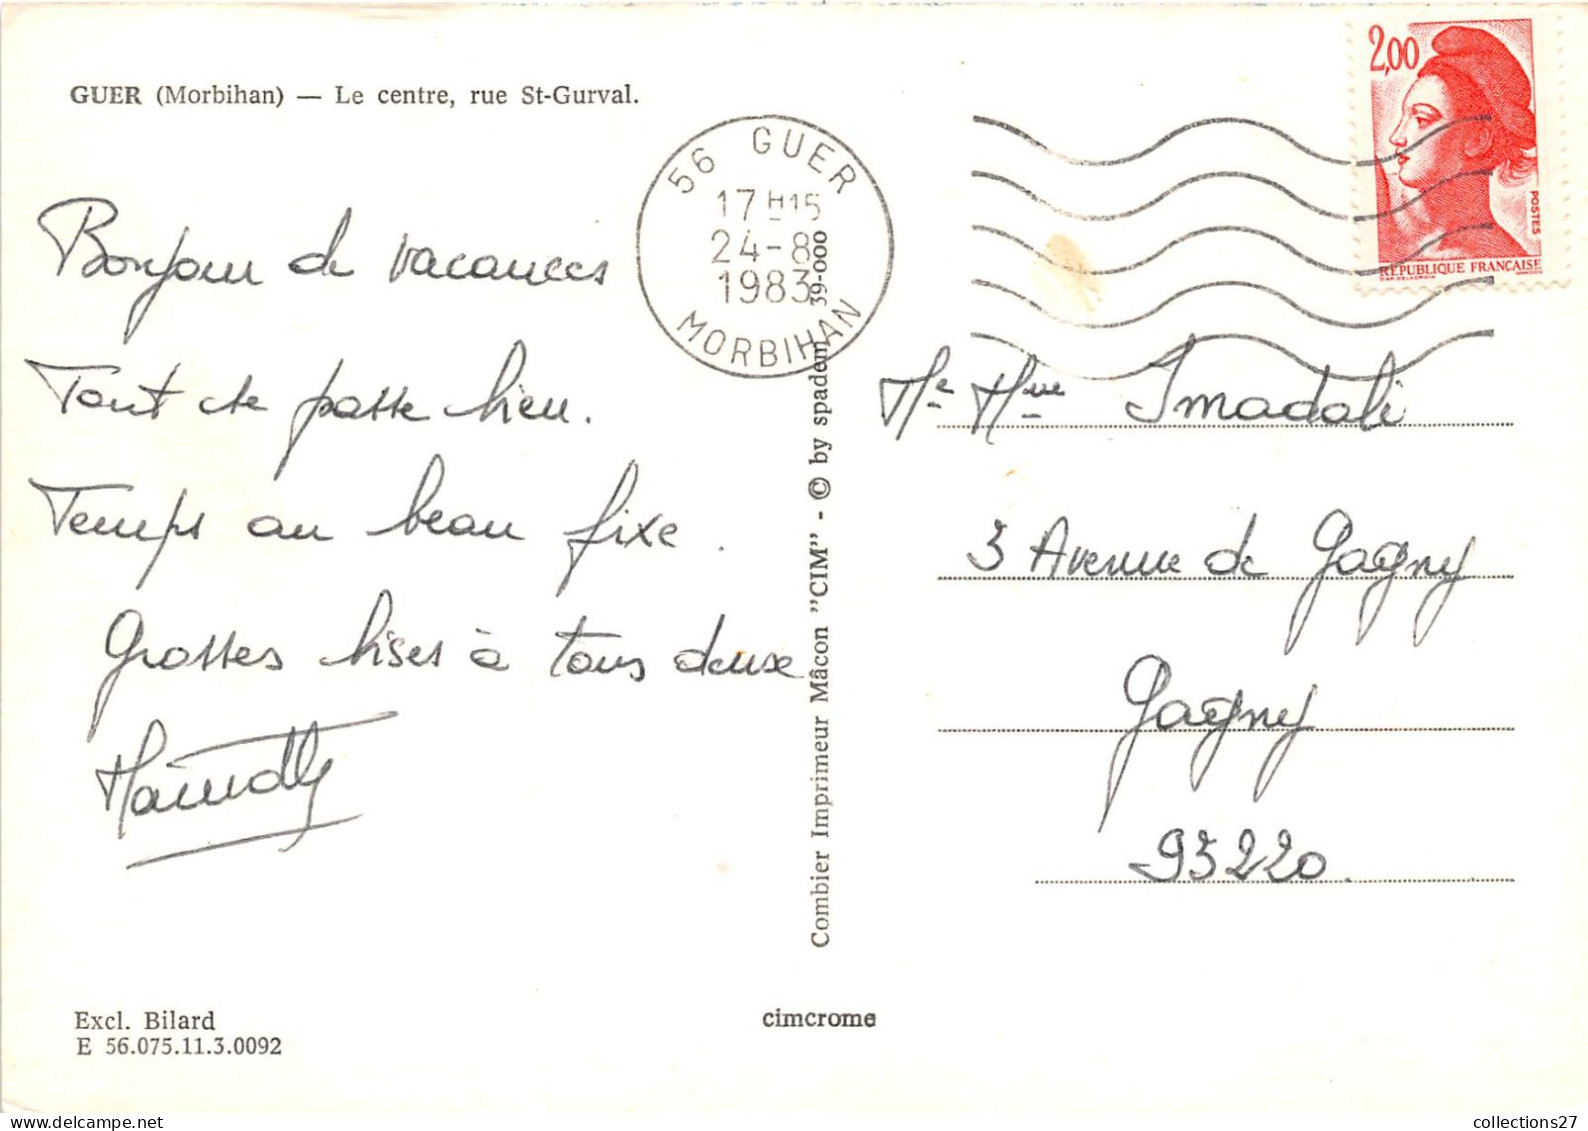 GUER (Morbihan) — Le centre, rue St-Gurval.
Bonjour de vacances
Tout se passe bien.
Temps au beau fixe.
Grosses bises à tous deux
56 GUER
17H15
24-8
1983
MORBIHAN
2,00
POSTES
RÉPUBLIQUE FRANÇAISE
Mr Mme Imadali
3 Avenue de Gagny
Gagny
93220.
Combier Imprimeur Mâcon "CIM" - © by spadem 39-000
Excl. Bilard
E 56.075.11.3.0092
cimcrome
collections27